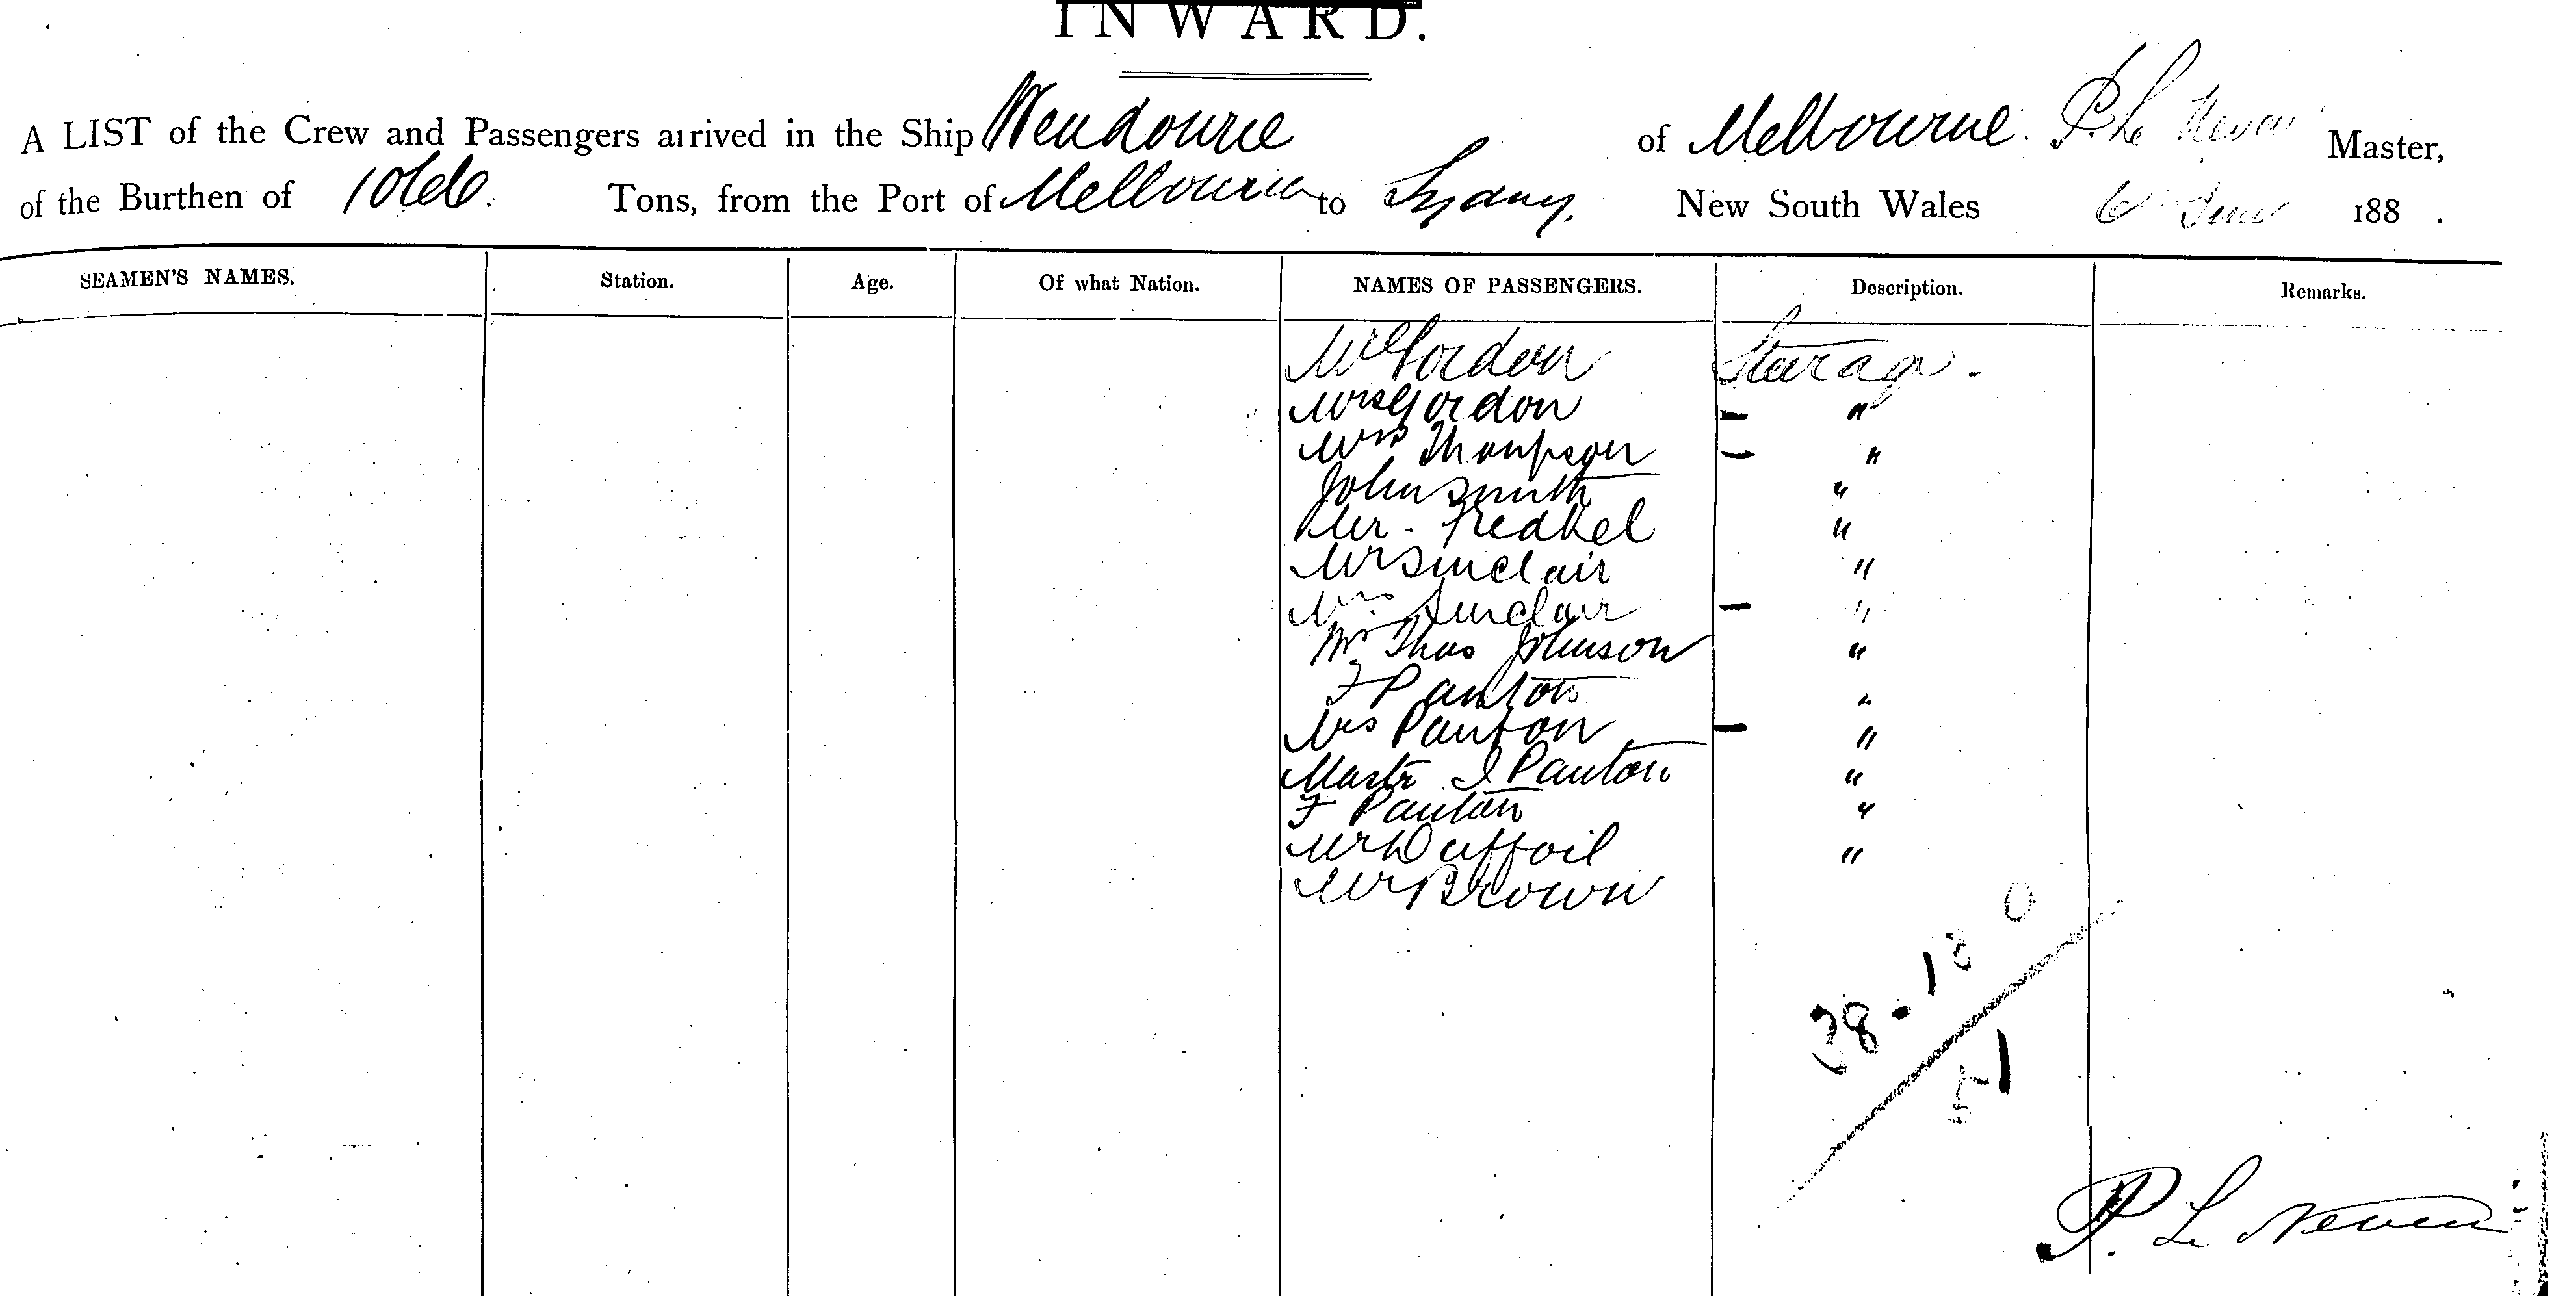 INWARD.
A LIST of the Crew and Passengers arrived in the Ship Wendouree of Melbourne. P. Le Neven Master,
of the Burthen of Tons, from the Port of Melbourne to Sydney, New South Wales 6 June 188 .
SEAMEN'S NAMES. Station. Age. Of what Nation. NAMES OF PASSENGERS. Description. Remarks.
Mr Gordon Steerage.
Mrs Gordon — "
Mrs Thompson — "
John Smith "
Mr. "
Mr Sinclair "
Mrs Sinclair — "
Mr Thos Johnson "
F Panton "
Mrs Panton — "
Mastr J Panton "
F Panton "
Mr Duffoil "
Mr Brown
38.10 0
51
P. Le Neven